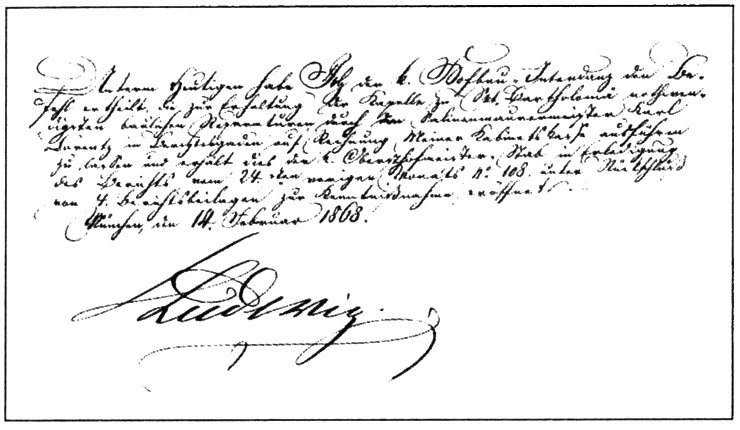 Unterm Heutigen habe Ich der k. Hofbau-Intendanz den Be-
fehl ertheilt, die zur Erhaltung der Kapelle zu Skt. Bartholomä nothwen-
digsten baulichen Reparaturen durch den Salinenmaurermeister Karl
Lorentz in Berchtesgaden auf Rechnung Meiner Kabinetskasse ausführen
zu lassen und erhält dies der k. Obersthofmeister-Stab in Erledigung
des Berichts vom 24. ten vorigen Monats No 108. unter Rückschluß
von 4. Berichtsbeilagen zur Kenntnißnahme eröffnet.
München, den 14. Februar 1868.
Ludwig.